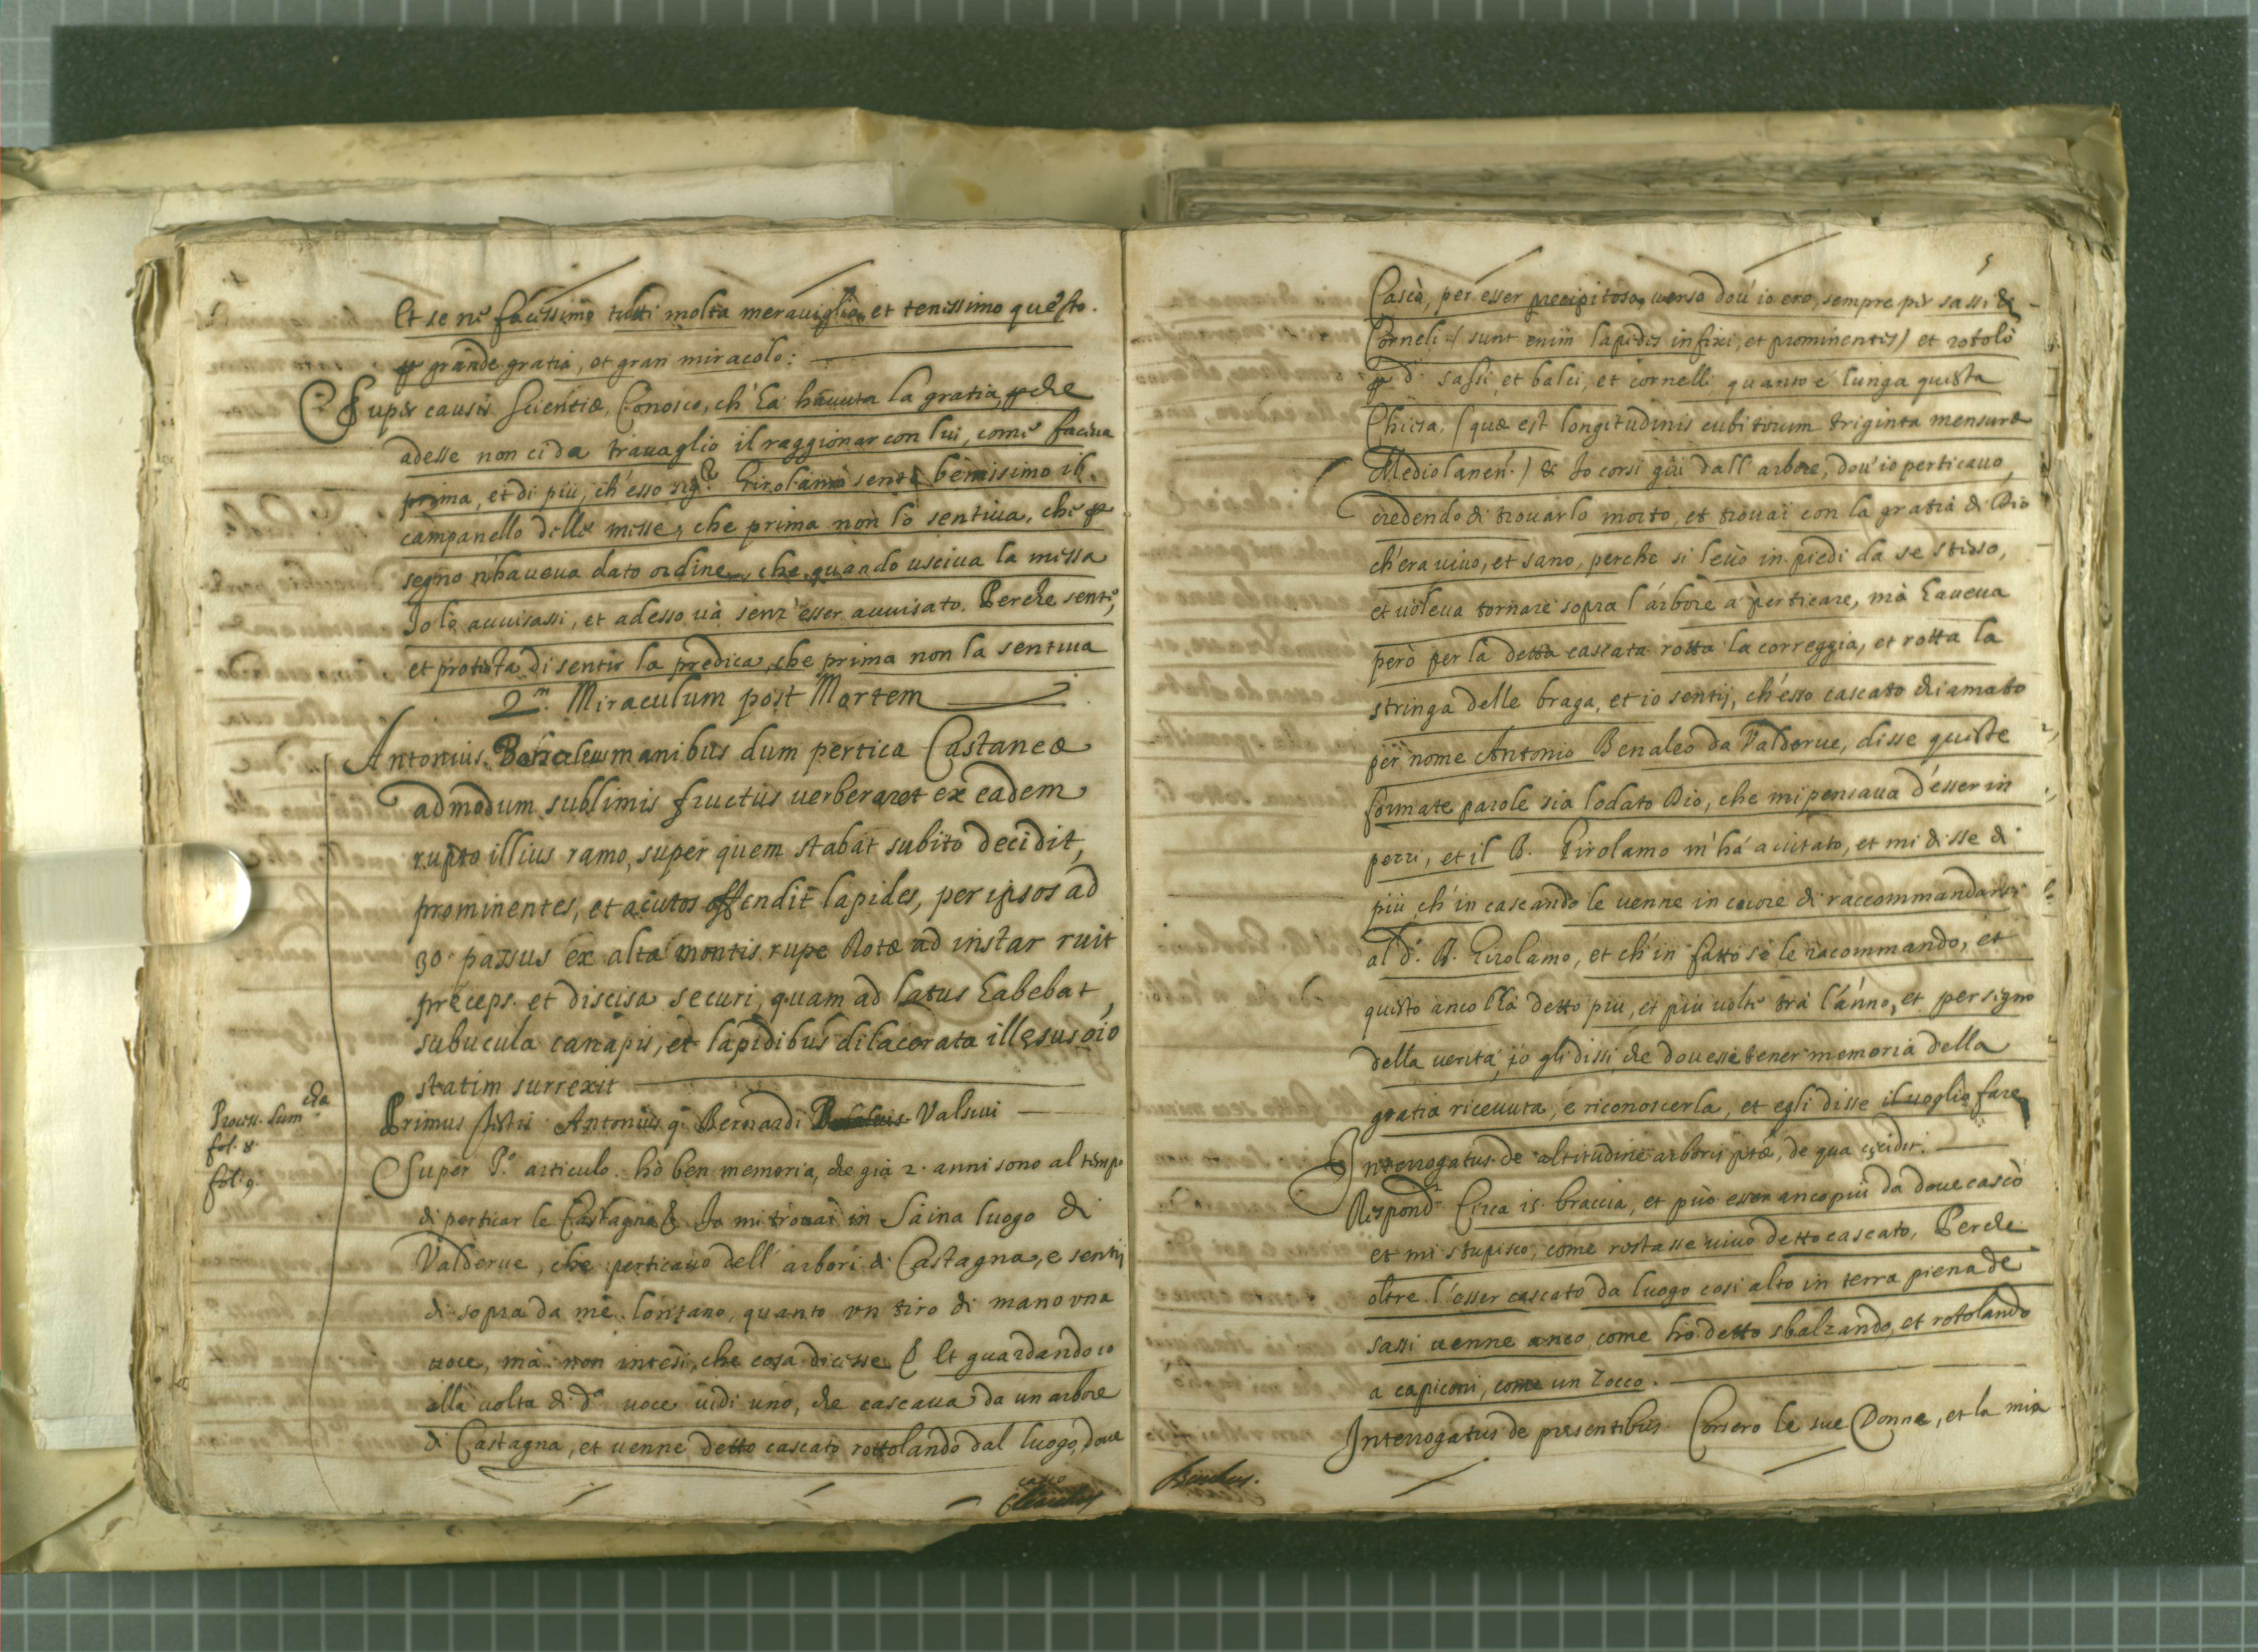 Et se ne facessimo tutti molta merauiglia, et tenessimo questo.
p grande gratia, et gran miracolo:
Super causis scientiæ, Conosco, ch'ha hauuta la gratia, pche
adesse non ci da trauaglio il raggionar con lui, come faceua
prima, et di più, ch'esso sig.r Girolamo sente benissimo il
campanello delle messe, che prima non lo sentiua, che p
segno n'haueua dato ordine, che quando usciua la messa
Io lo auuisassi, et adesso uà senz'esser auuisato. Perche sente,
et protesta di sentir la predica, che prima non la sentiua
2.m Miraculum post Mortem
Antonius Benaleus manibus dum pertica Castaneæ
admodum sublimis fructus uerberaret ex eadem
rupto illius ramo, super quem stabat subito decidit,
prominentes, et acutos offendit lapides, per ipsos ad
30 passus ex alta montis rupe Rotæ ad instar ruit
præceps et discisa securi, quam ad latus habebat,
subucula canapis, et lapidibus dilacerata illesus oio
statim surrexit
Process. Sum.
fol. 8
fol. 9.
Primus testis Antonius q. Bernardi Valseui
Super P.o articulo. hò ben memoria, che già 2. anni sono al tempo
di perticar le Castagne & Io mi trouai in Saina luogo di
Valderue, che perticauo dell'arbori di Castagna, e sentij
di sopra da me lontano, quanto un tiro di mano una
uoce, mà non intesi, che cosa dicesse & Et guardando io
alla uolta di d.a uoce uidi uno, che cascaua da un arbore
di Castagna, et uenne detto cascato rottolando dal luogo, doue
casco
5
Cascò, per esser precipitoso, uerso dou'io ero, sempre per sassi &
Corneli (sunt enim lapides infixi, et prominentes) et rotolò
p d.i sassi, et balci, et cornelli quanto è lunga questa
Chiesa, (quæ est longitudinis cubitorum triginta mensuræ
Mediolanen.) & Io corsi giù dall'arbore, dou'io perticauo,
credendo di trouarlo morto, et trouai con la gratia di Dio
ch'era uiuo, et sano, perche si leuò in piedi da se stesso,
et uoleua tornare sopra l'arbore à perticare, mà haueua
però per la detta cascata rotta la correggia, et rotta la
stringa delle braga, et io sentij, ch'esso cascato chiamato
per nome Antonio Benaleo da Valderue, disse queste
formate parole sia lodato Dio, che mi pensaua d'esser in
pezzi, et il B. Girolamo m'hà aiutato, et mi disse di
più, ch'in cascando le uenne in cuore di raccommandarsi
al d.o B. Girolamo, et ch'in fatto se le racommando, et
questo anco l'hà detto più, et più uolte trà l'anno, et per segno
della uerità, io gli dissi, che douesse tener memoria della
gratia riceuuta, e riconoscerla, et egli disse il uoglio fare
Interrogatus de altitudine arboris ptæ, de qua cecidit.
Respond.t Circa 15. braccia, et può esser anco più da doue cascò
et mi stupisco, come restasse uiuo detto cascato, Perche
oltre l'esser cascato da luogo così alto in terra piena de
sassi uenne anco, come hò detto sbalzando, et rotolando
a capiconi, come un Zocco.
Interrogatus de presentibus. Corsero le sue Donne, et la mia